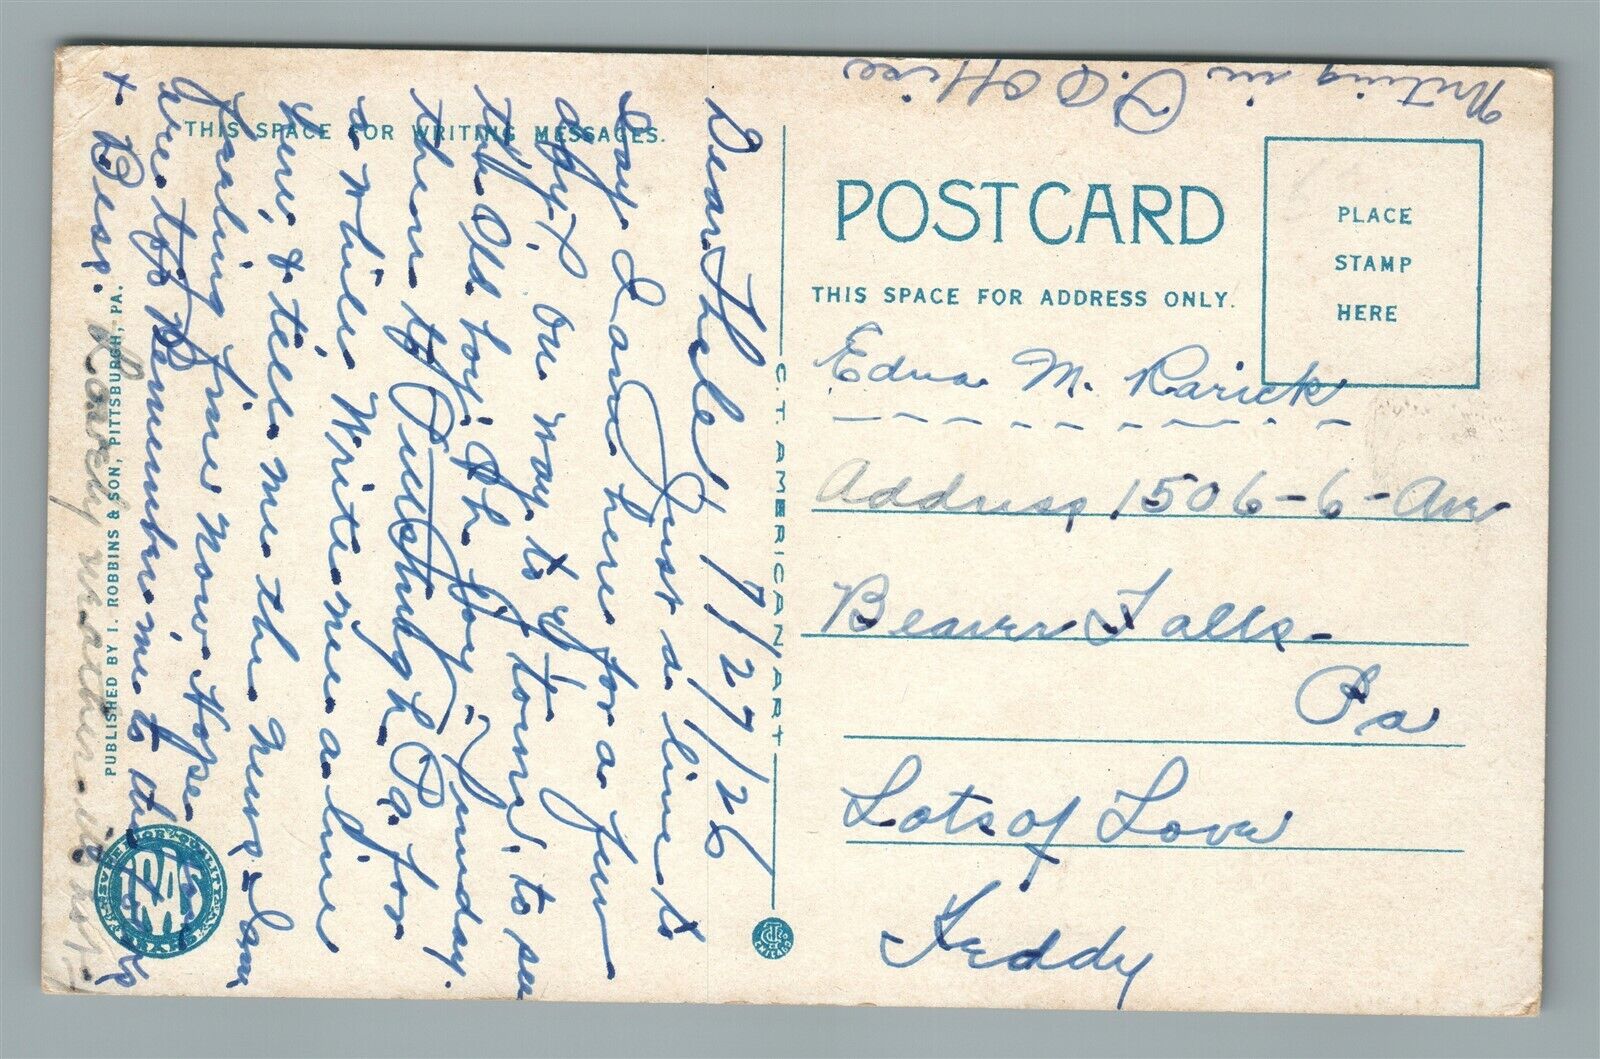 Writing in P.O Office
THIS SPACE FOR WRITING MESSAGES.
POST CARD
PLACE
STAMP
HERE
THIS SPACE FOR ADDRESS ONLY.
Dear Thelel 7/27/26
Just a line to
say I am here for a few
days. On way to E. town, to see
the Old boy. Oh boy - Sunday.
then to Pittsburgh Pa. for
a while, Write me a line
here, & tell me the news - I am
Feeling fine Now Hope you
are to Remember me to the folks
+ Bess.
Lovely weather. it hot
Edna M. Rarick
Address 1506-6-Ave
Beaver Falls-
Pa
Lots of Love
Teddy
C.T. AMERICAN ART
PUBLISHED BY I. ROBBINS & SON, PITTSBURGH, PA.
CHICAGO